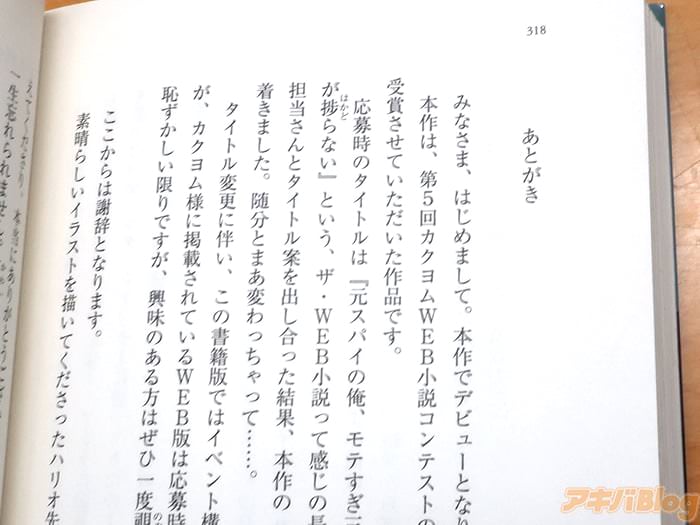 318
あとがき
みなさま、はじめまして。本作でデビューとなり
本作は、第5回カクヨムWEB小説コンテストの
受賞させていただいた作品です。
応募時のタイトルは『元スパイの俺、モテすぎ
が捗らない』という、ザ・WEB小説って感じの長
はかど
担当さんとタイトル案を出し合った結果、本作の
着きました。随分とまあ変わっちゃって……。
タイトル変更に伴い、この書籍版ではイベント構
が、カクヨム様に掲載されているWEB版は応募時
恥ずかしい限りですが、興味のある方はぜひ一度覗
ここからは謝辞となります。
素晴らしいイラストを描いてくださったハリオ先
本当にありがとうござ
一生忘れられません
アキバBlog